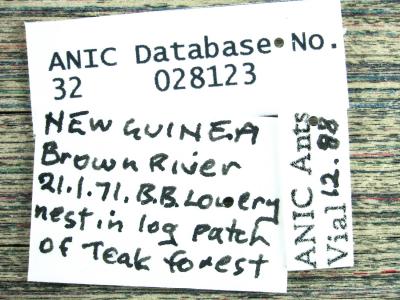 ANIC Database No.
32 028123
NEW GUINEA
Brown River
21.1.71. B.B. Lowery
nest in log patch
of Teak forest
ANIC Ants
Vial 12.88